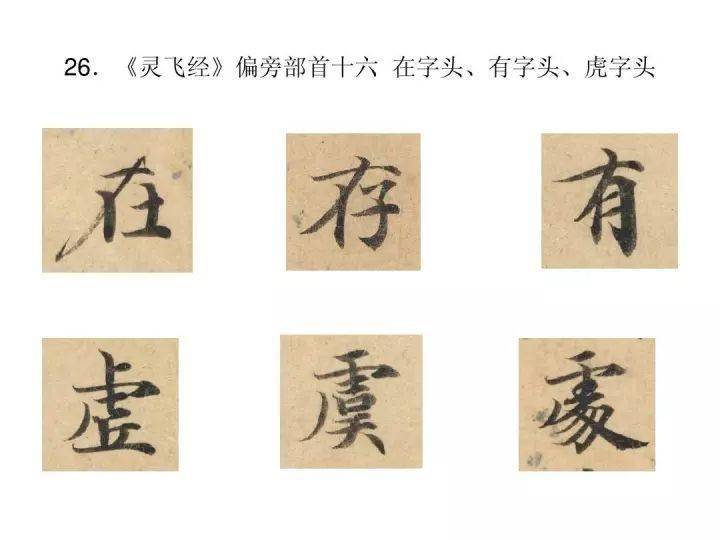 26. 《灵飞经》偏旁部首十六 在字头、有字头、虎字头
在 存 有
虚 虞 處